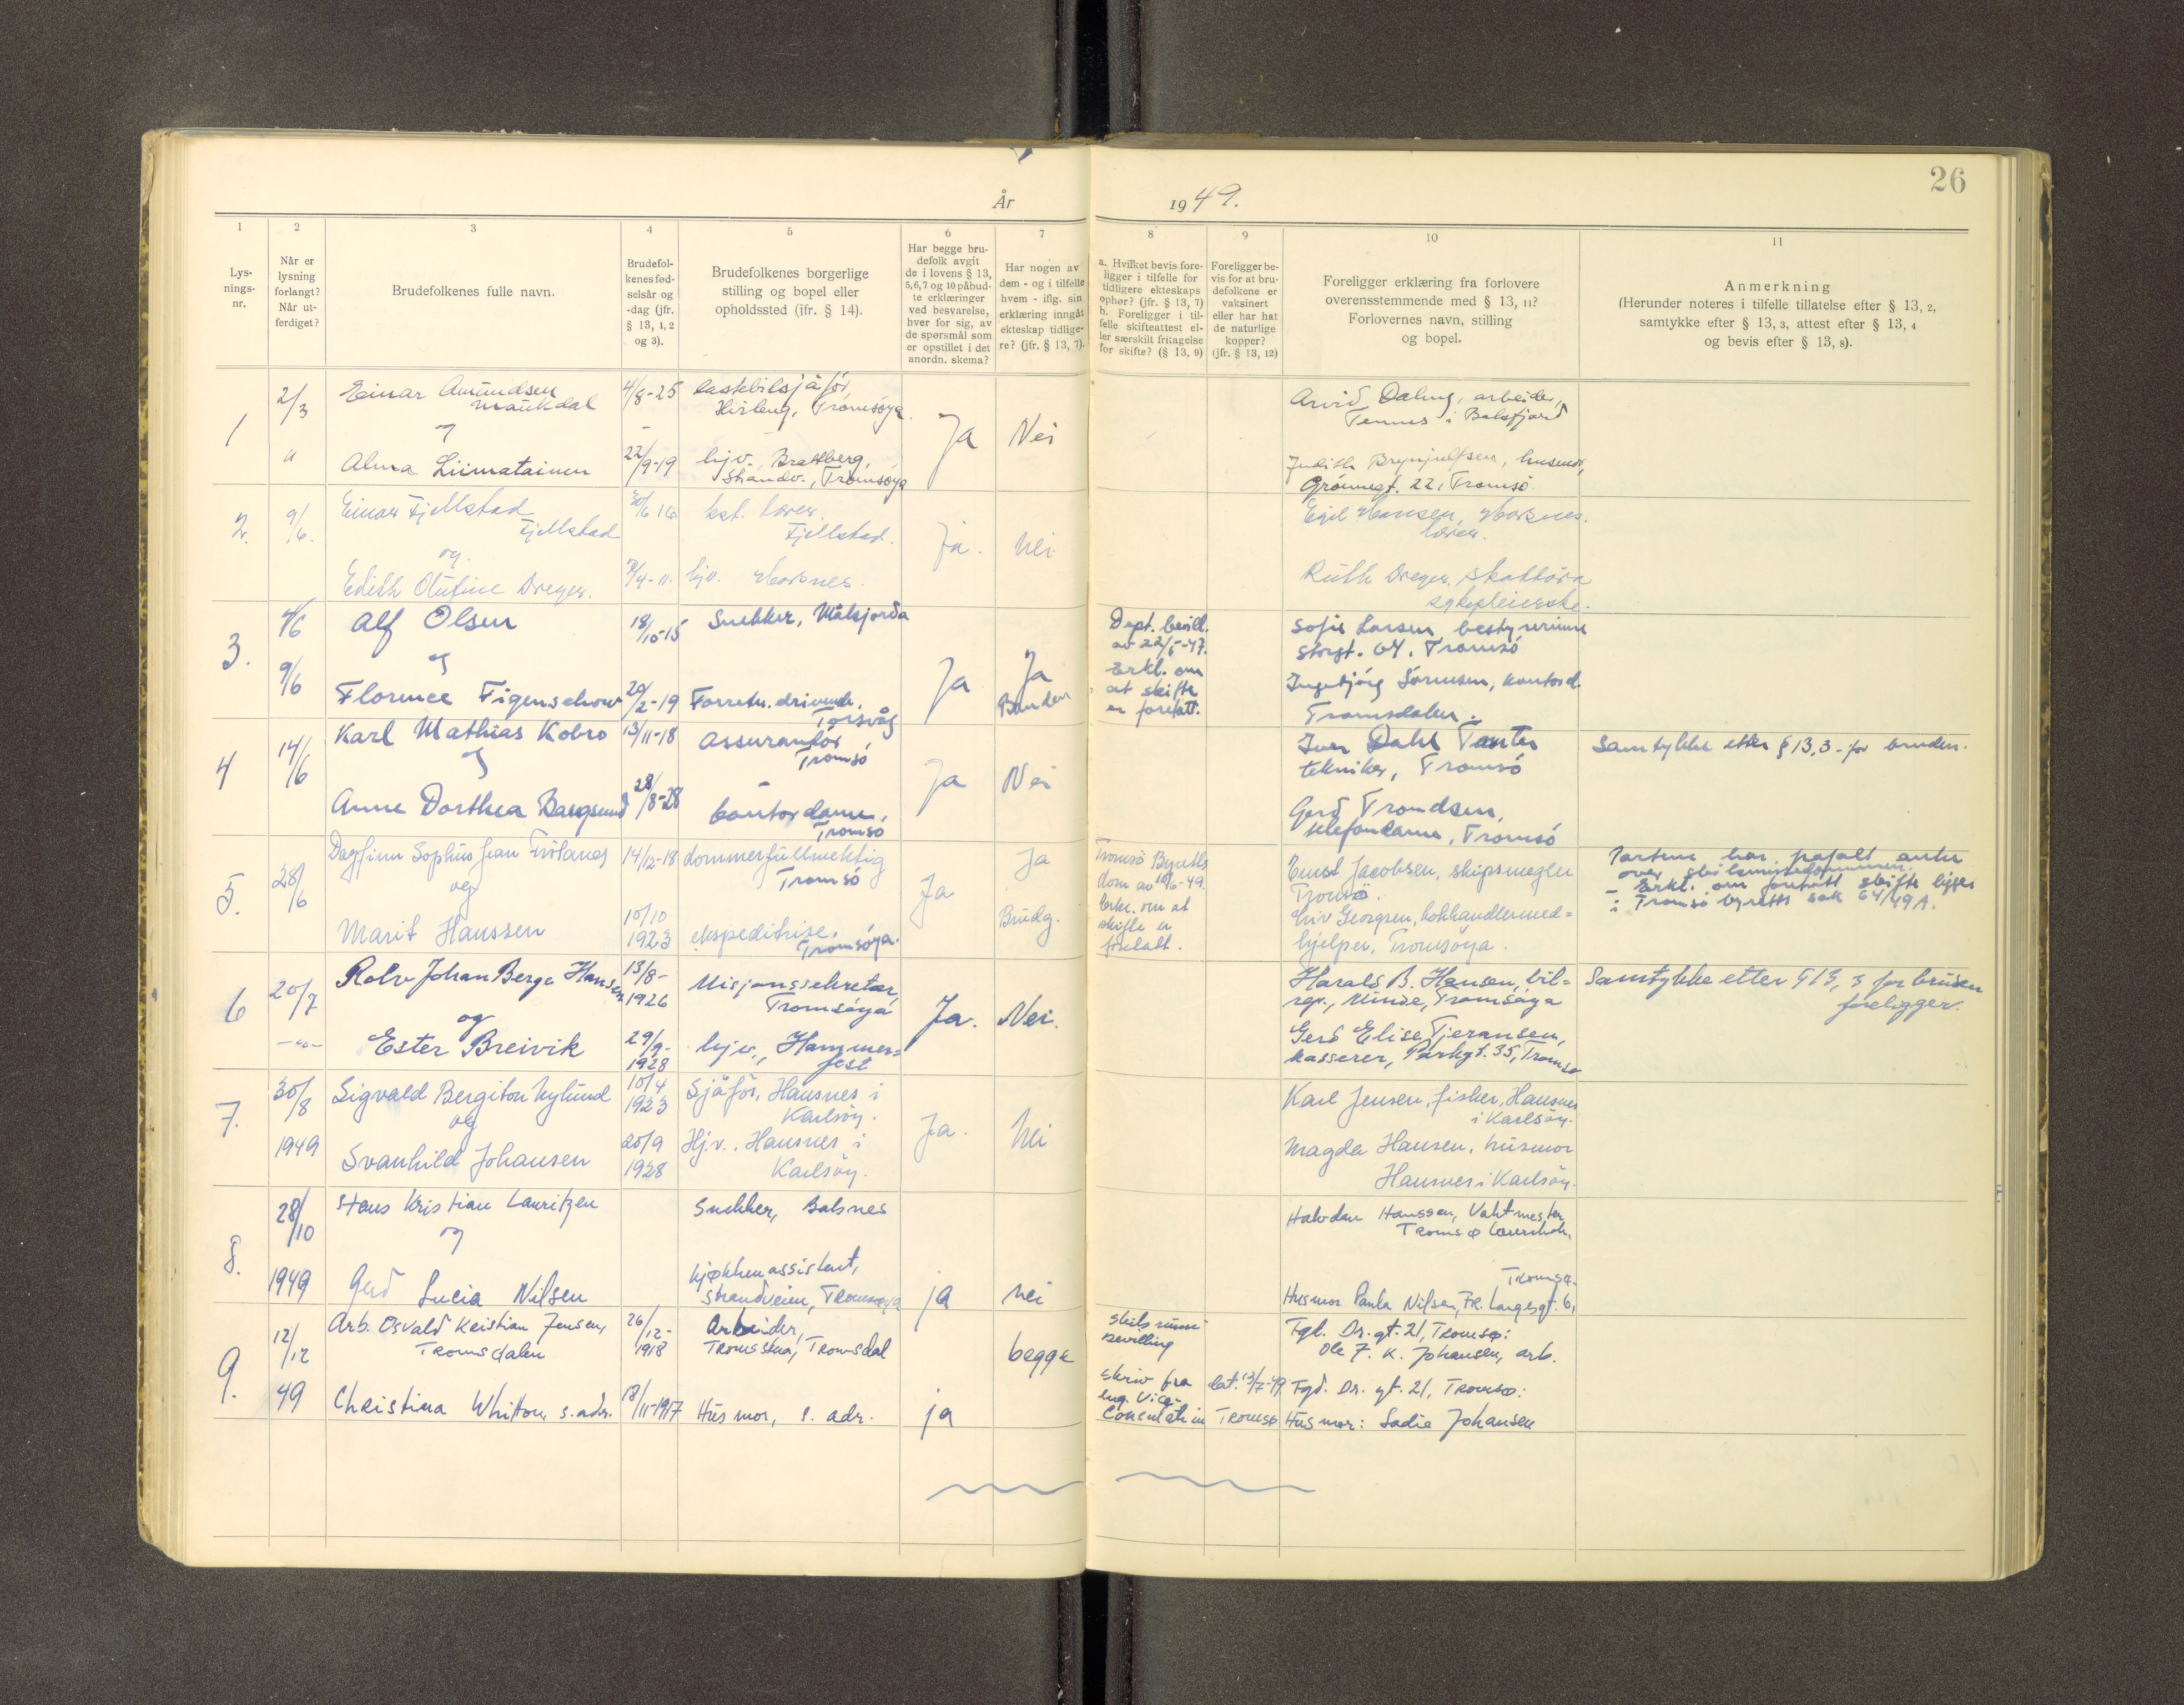 26
År
19 49.
1
2
3
4
5
6
7
8
9
10
11
Lys-
nings-
nr.
Når er
lysning
forlangt?
Når ut-
ferdiget?
Brudefolkenes fulle navn.
Brudefol-
kenes fød-
selsår og
-dag (jfr.
§ 13, 1, 2
og 3).
Brudefolkenes borgerlige
stilling og bopel eller
opholdssted (jfr. § 14).
Har begge bru-
defolk avgit
de i lovens § 13,
5,6,7 og 10 påbud-
te erklæringer
ved besvarelse,
hver for sig, av
de spørsmål som
er opstillet i det
anordn. skema?
Har nogen av
dem - og i tilfelle
hvem - iflg. sin
erklæring inngåt
ekteskap tidlige-
re? (jfr. § 13, 7).
a. Hvilket bevis fore-
ligger i tilfelle for
tidligere ekteskaps
ophør? (jfr. § 13, 7)
b. Foreligger i til-
felle skifteattest el-
ler særskilt fritagelse
for skifte? (§ 13, 9)
Foreligger be-
vis for at bru-
defolkene er
vaksinert
eller har hat
de naturlige
kopper?
(jfr. § 13, 12)
Foreligger erklæring fra forlovere
overensstemmende med § 13, 11?
Forlovernes navn, stilling
og bopel.
Anmerkning
(Herunder noteres i tilfelle tillatelse efter § 13, 2,
samtykke efter § 13, 3, attest efter § 13, 4
og bevis efter § 13, 8).
1
2/3
"
Einar Amundsen
Maukdal
og
Alma Liimatainen
4/8-25
22/9-19
lastebilsjåfør
Tromsøya.
hjv., Brattberg,
Strandv., Tromsøya
Ja
Nei
Arvid Dalung, arbeider,
Tennes i Balsfjord
Judith Brynjulfsen, husmor,
Grønnegt. 22, Tromsö.
2.
9/6.
Einar Fjellstad
Fjellstad
og.
Edith Olufine Dreyer.
30/6 16
7/4-11.
kst. lærer.
Fjellstad.
hjv. Marsnes.
Ja.
nei
Egil Hansen,
lærer.
Ruth Dreyer. Skattöra
sykepleierske.
3.
4/6
9/6
Alf Olsen
og
Florence Figenschow
18/10-15
20/2-19
Snekker, Målsjorda
Forretn.drivende.
Torsvåg
Ja
Ja
Bruden
Dept. bevill.
av 22/5-47.
Erkl. om
at skifte
er foretatt.
Sofie Larsen, bestyrerinne
Storgt. 64, Tromsö
Ingebjörg Sörensen, kontord.
Tromsdalen.
4
14/6
Karl Mathias Kobro
og
Anne Dorthea Bangsund
13/11-18
28/8-28
Assurandör
Tromsö
kontordame,
Tromsö
Ja
Nei
Iver Dahl Tanter
tekniker, Tromsö
Gerd Trondsen,
telefondame, Tromsö
Samtykke etter § 13, 3 - for bruden.
5.
28/6
Dagfinn Sophus Jean Frölanes
og
Marit Hanssen
14/12-18
10/10
1923
dommerfullmektig
Tromsö
ekspeditrise.
Tromsöya.
Ja
Ja
Brudg.
Tromsö Byretts
dom av 10/6-49.
Erkl. om at
skifte er
foretatt.
Ernst Jacobsen, skipsmegler
Tromsö.
Liv Georgsen, bokhandlermed=
hjelper, Tromsöya.
Partene har påtalt anke
over skilsmissedommen.
- Erkl. om foretatt skifte ligger
i Tromsö byretts sak 64/49 A.
6
20/7
-"-
Rolv Johan Berge Hansen
og
Ester Breivik
13/8-
1926
29/9-
1928
Misjonssekretær,
Tromsöya
hjv., Hammer=
fest
Ja.
Nei.
Harald B. Hansen, bil=
rep., Minde, Tromsöya
Gerd Elise Tjeransen,
kasserer, Parkgt. 35, Tromsö
Samtykke etter § 13, 3 for bruden
foreligger.
7.
30/8
1949
Sigvald Bergiton Nylund
og
Svanhild Johansen
10/4
1923
20/9
1928
Sjåför, Hansnes i
Karlsöy.
Hjv., Hansnes i
Karlsöy.
Ja.
Nei
Karl Jensen, fisker, Hansnes
i Karlsöy.
Magda Hansen, husmor
Hansnes i Karlsöy.
8.
28/10
1949
Hans Kristian Lauritzen
og
Gerd Lucia Nilsen
Snekker, Balsnes
kjøkkenassistent,
Strandveien, Tromsøya
ja
nei
Halvdan Hanssen, Vaktmester
Tromsø
Tromsø.
Husmor Paula Nilsen, Fr. Langesgt. 6,
9.
12/12
49
Arb. Osvald Kristian Jensen,
Tromsdalen
Christina Whitton, s. adr.
26/12-
1918
18/11-1917
Arbeider,
Tromsdal
Husmor, s. adr.
ja
begge
Skilsmisse
bevilling
Skriv fra
eng. Vice
Consulat in
dat. 13/7-49.
Tromsø
Fgt. Dr. gt. 21, Tromsø:
Ole F. K. Johansen, arb.
Fgd. Dr. gt. 21, Tromsø:
Husmor: Sadie Johansen